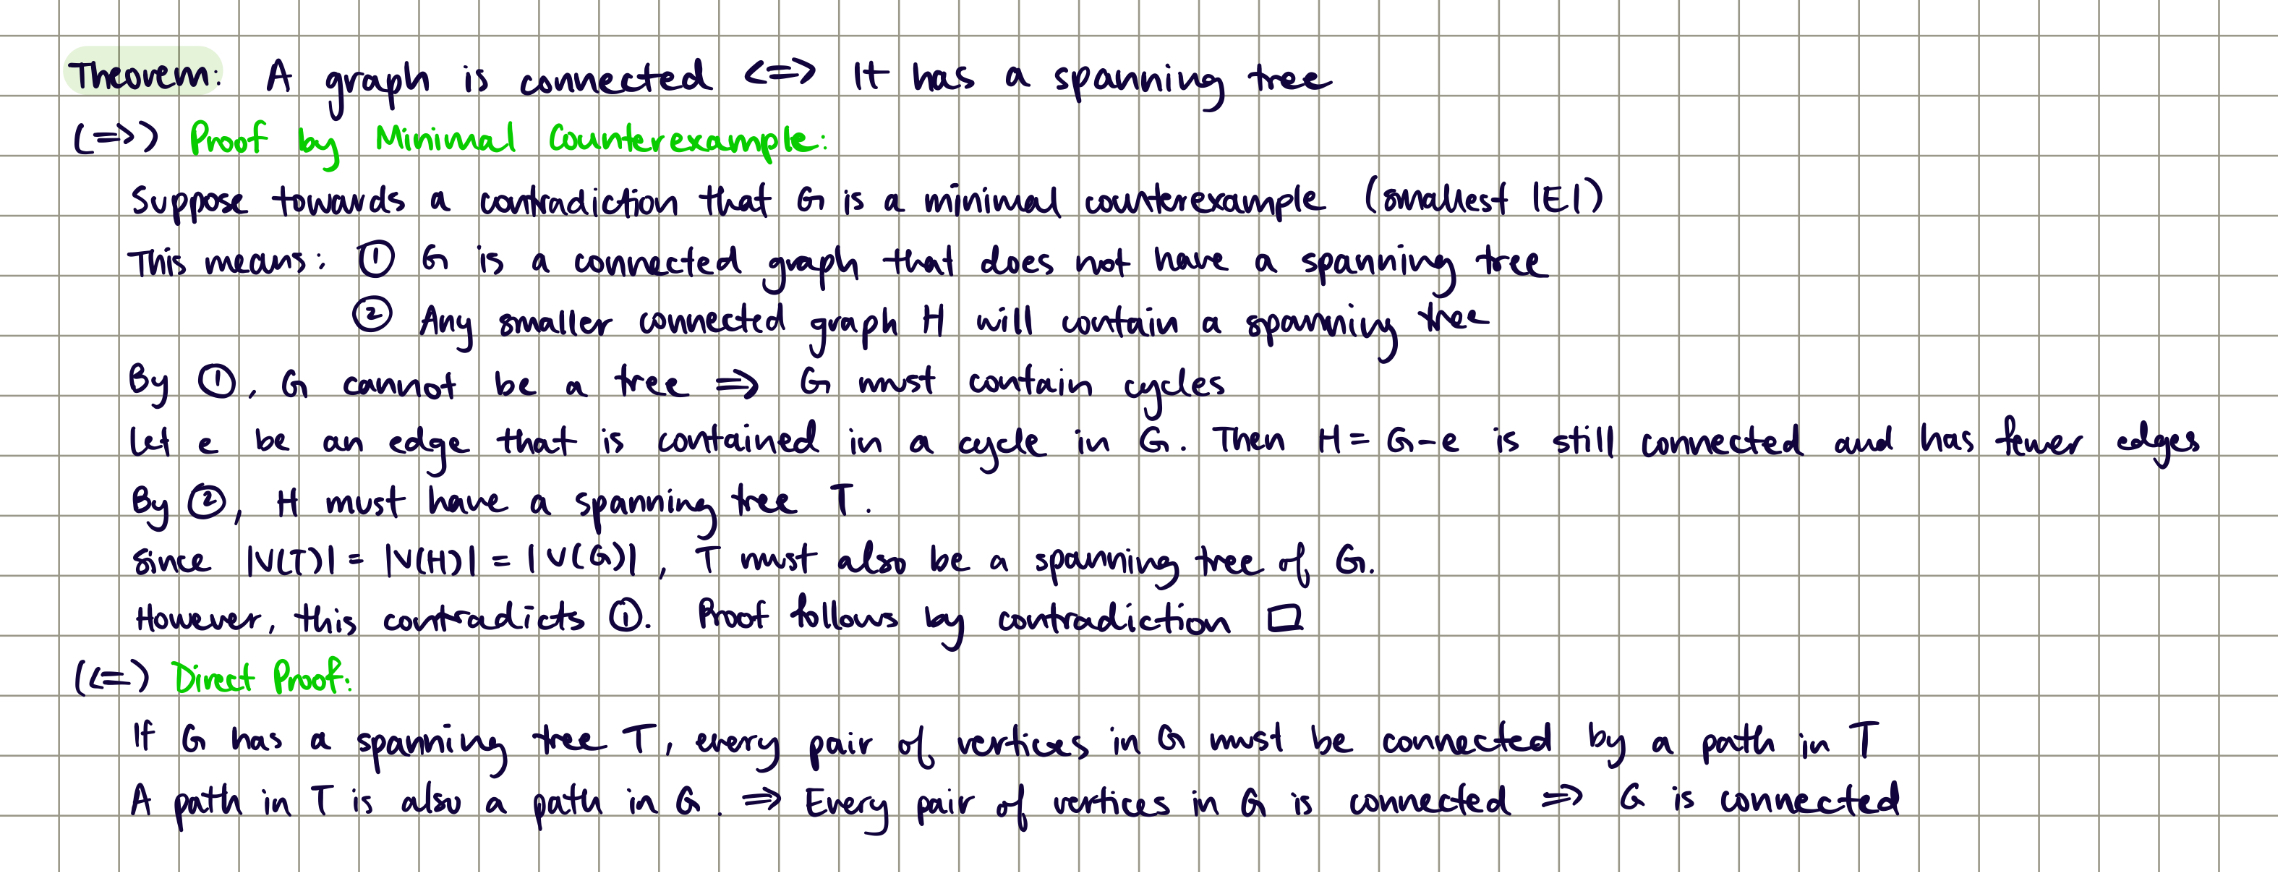 Theorem: A graph is connected <=> It has a spanning tree
(=>) Proof by Minimal Counterexample:
Suppose towards a contradiction that G is a minimal counterexample (smallest |E|)
This means: ① G is a connected graph that does not have a spanning tree
② Any smaller connected graph H will contain a spanning tree
By ①, G cannot be a tree => G must contain cycles
Let e be an edge that is contained in a cycle in G. Then H = G-e is still connected and has fewer edges
By ②, H must have a spanning tree T.
Since |V(T)| = |V(H)| = |V(G)|, T must also be a spanning tree of G.
However, this contradicts ①. Proof follows by contradiction □
(<=) Direct Proof:
If G has a spanning tree T, every pair of vertices in G must be connected by a path in T
A path in T is also a path in G. => Every pair of vertices in G is connected => G is connected